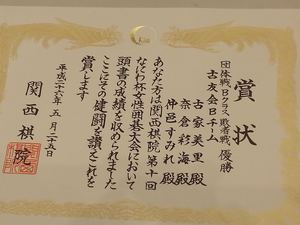 賞状
団体戦Bクラス、敗者戦、優勝
古友会Bチーム
古家美里殿
奈倉彩海殿
仲邑すみれ殿
あなた方は関西棋院第十回
なにわ杯女性囲碁大会において
頭書の成績を収められました
ここにその健闘を讃えこれを
賞します
平成二十六年五月二十五日
関西棋院